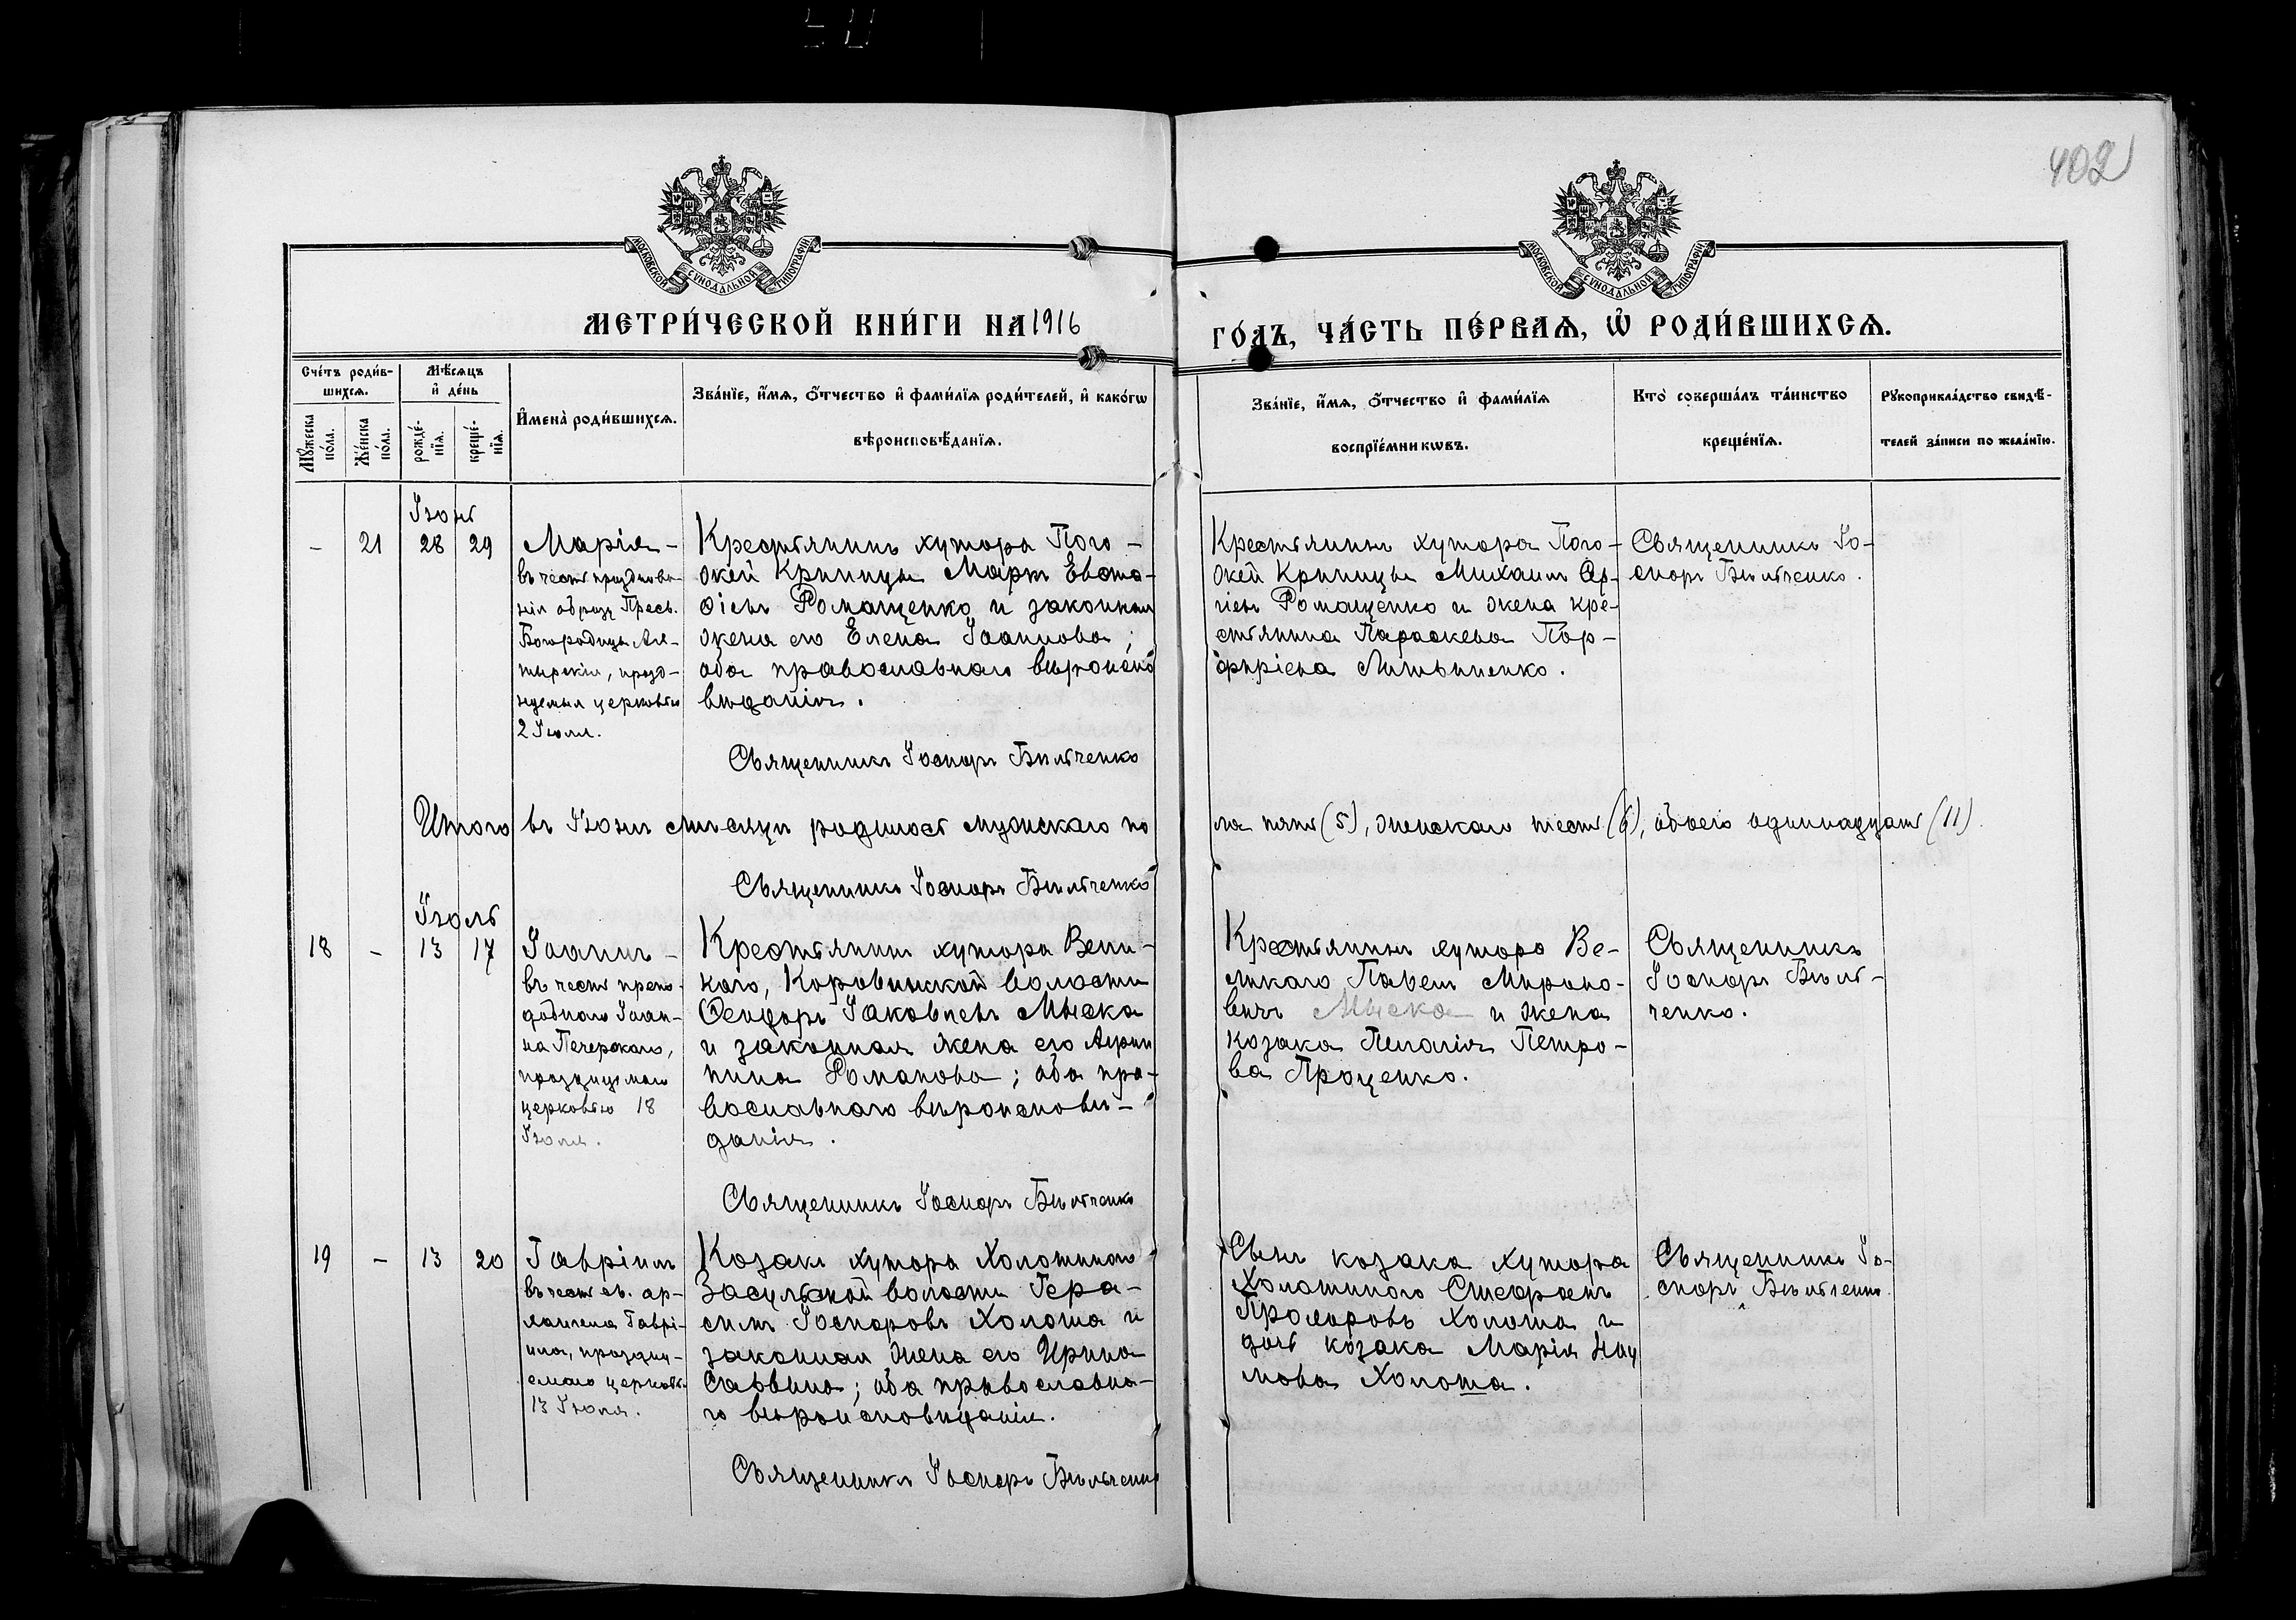 402
МОСКОВСКОЙ СУНОДАЛЬНОЙ ТИПОГРАФІИ
МОСКОВСКОЙ СУНОДАЛЬНОЙ ТИПОГРАФІИ
МЕТРИ́ЧЕСКОЙ КНИ́ГИ НА 1916
ГО́ДЪ, ЧА́СТЬ ПЕ́РВАѦ, Ѡ҆ РОДИ́ВШИХСѦ.
Сче́тъ роди́в-
шихсѧ.
Мꙋ́жеска
по́ла.
Же́нска
по́ла.
Мѣ́сѧцъ
и҆ де́нь
рожде́-
нїѧ.
креще́-
нїѧ.
И҆мена̀ роди́вшихсѧ.
Зва́нїе, и҆́мѧ, ѻ҆́тчество и҆ фами́лїѧ роди́телей, и҆ како́гѡ
вѣроисповѣ́данїѧ.
Зва́нїе, и҆́мѧ, ѻ҆́тчество и҆ фами́лїѧ
воспрїе́мникѡвъ.
Кто̀ соверша́лъ та́инство
креще́нїѧ.
Рꙋкоприкла́дство свидѣ́-
телей за́писи по жела́нїю.
Іюнь
- 21 28 29
Марія -
въ честь празднова-
нія образу Пресв.
Богородицы Ах-
тырскія, празд-
нуемыя церковью
2 Іюля.
Крестьянинъ хутора Пого-
жей Криницы Маркъ Евста-
фіевъ Ромащенко и законная
жена его Елена Іоаннова;
оба православнаго вѣроиспо
вѣданія.
Священникъ Іосифъ Бѣльченко
Крестьянинъ хутора Пого-
жей Криницы Михаилъ
Ромащенко и жена кре-
стьянина Параскева Пор-
фиріева Литвиненко.
Священникъ Іо-
сифъ Бѣльченко.
Итого въ Іюнѣ мѣсяцѣ родилось мужскаго по
ла пять (5), женскаго шесть (6), обоего одиннадцать (11).
Священникъ Іосифъ Бѣльченко
Іюль
18 - 13 17
Іоаннъ -
въ честь препо-
добнаго Іоан-
на Печерскаго,
празднуемаго
церковью 18
Іюля.
Крестьянинъ хутора Вели-
каго, Коровинской волости
Ѳеодоръ Іаковлевъ Мыска
и законная жена его Агрип
пина Романова; оба пра-
вославнаго вѣроисповѣ-
данія.
Священникъ Іосифъ Бѣльченко
Крестьянинъ хутора Ве-
ликаго Павелъ Мироно-
вичъ Мыска и жена
козака Пелагія Петро-
ва Проценко.
Священникъ
Іосифъ Бѣль-
ченко.
19 - 13 20
Гавріилъ
въ честь св. ар-
хангела Гаврі-
ила, праздну-
емаго церковью
13 Іюля.
Козакъ хутора Холошиного
Засульской волости Гера-
симъ Іосифовъ Холоша и
законная жена его Ирина
Саввина; оба православна-
го вѣроисповѣданія.
Священникъ Іосифъ Бѣльченко
Сынъ козака хутора
Холошиного
Холоша и
дочь козака Марія Нау
мова Холоша.
Священникъ Іо-
сифъ Бѣльченко